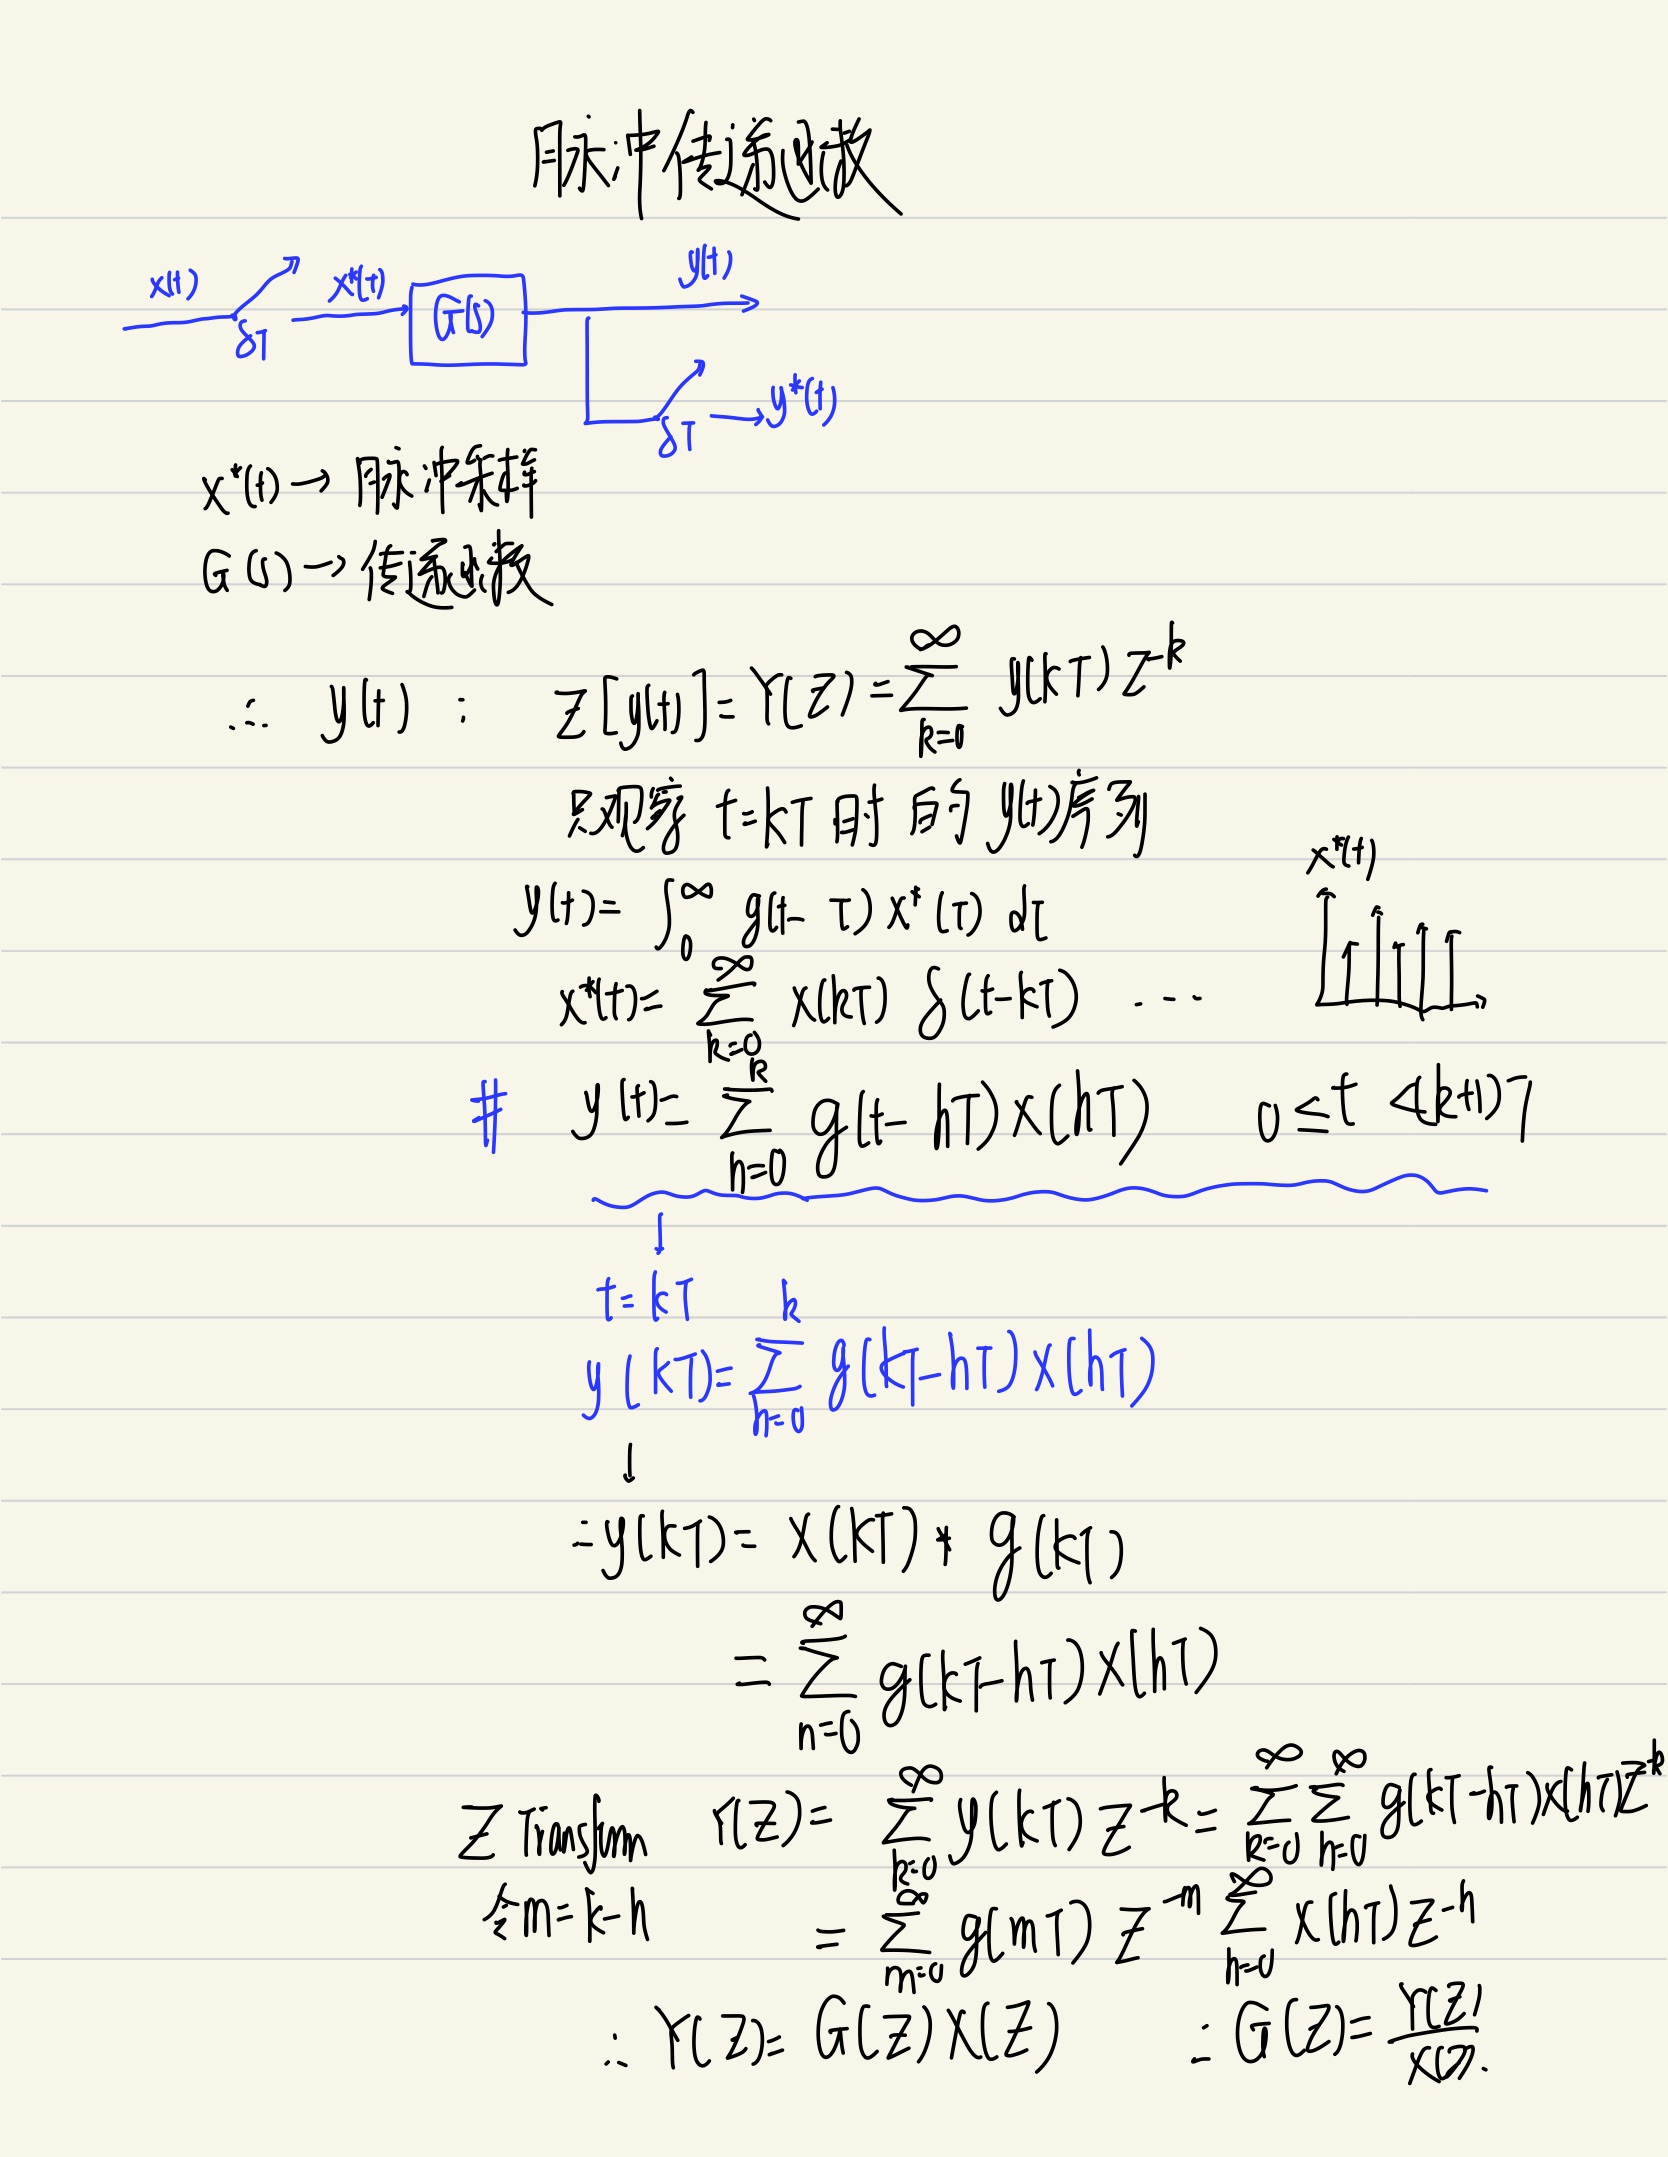 脉冲传递函数
x(t) δT x*(t) G(s) y(t)
δT y*(t)
x*(t) → 脉冲采样
G(s) → 传递函数
∴ y(t) : Z[y(t)] = Y(Z) = ∑_{k=0}^{∞} y(kT) Z^{-k}
只观察 t=kT 时的 y(t)序列
x*(t)
y(t) = ∫_0^∞ g(t-τ) x*(τ) dτ
x*(t) = ∑_{k=0}^{∞} x(kT) δ(t-kT) ...
# y(t) = ∑_{h=0}^{k} g(t-hT) x(hT) 0 ≤ t < (k+1)T
↓
t = kT
y(kT) = ∑_{h=0}^{k} g(kT-hT) x(hT)
↓
∴ y(kT) = x(kT) * g(kT)
= ∑_{n=0}^{∞} g(kT-hT) x(hT)
Z Transform Y(Z) = ∑_{k=0}^{∞} y(kT) Z^{-k} = ∑_{k=0}^{∞} ∑_{h=0}^{∞} g(kT-hT) x(hT) Z^{-k}
令 m = k-h = ∑_{m=0}^{∞} g(mT) Z^{-m} ∑_{h=0}^{∞} x(hT) Z^{-h}
∴ Y(Z) = G(Z) X(Z) ∴ G(Z) = Y(Z)/X(Z).